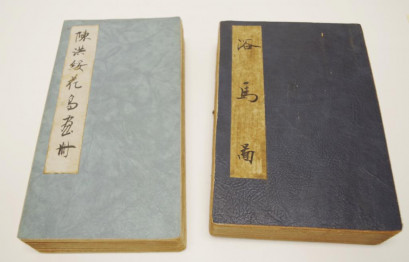 陳洪綬花鳥画册
浴馬圖